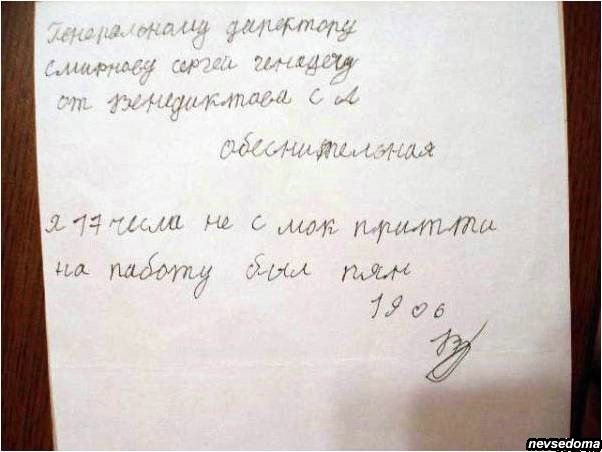 Генеральному директору
Смирнову сергей генадечу
от Венедиктова С А
обеснительная
я 17 числа не с мок притти
на работу был пян
19 06
nevsedoma